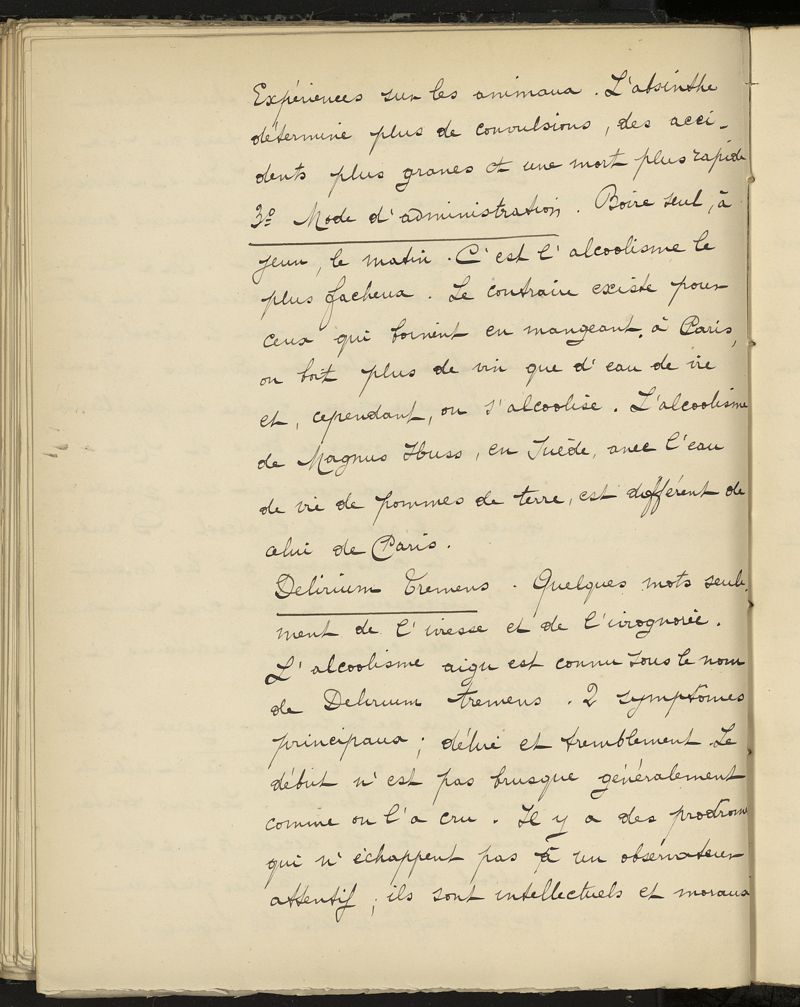 Expériences sur les animaux. L'absinthe
détermine plus de convulsions, des acci-
dents plus graves et une mort plus rapide
3º Mode d'administration. Boire seul, à
jeun, le matin. C'est l'alcoolisme le
plus facheux. Le contraire existe pour
ceux qui boivent en mangeant. à Paris,
on boit plus de vin que d'eau de vie
et, cependant, on s'alcoolise. L'alcoolisme
de Magnus Huss, en Suède, avec l'eau
de vie de pommes de terre, est différent de
celui de Paris.
Delirium Tremens. Quelques mots seule
ment de l'ivresse et de l'ivrognerie.
L'alcoolisme aigu est connu sous le nom
de Delirium tremens. 2 symptômes
principaux; délire et tremblement. Le
début n'est pas brusque généralement
comme on l'a cru. Il y a des prodrome
qui n'échappent pas à un observateur
attentif; ils sont intellectuels et moraux